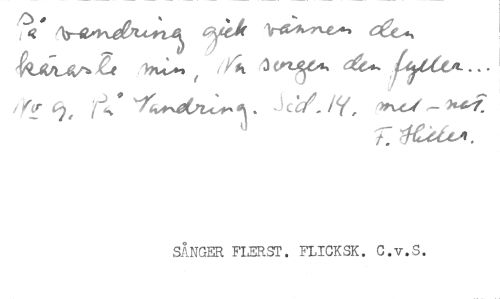 På vandring gick vännen den
käraste min, Nu sorgen den fyller...
No 9. På Vandring. Sid. 14. mel-not.
F. Hiller.
SÅNGER FLERST. FLICKSK. C.v.S.